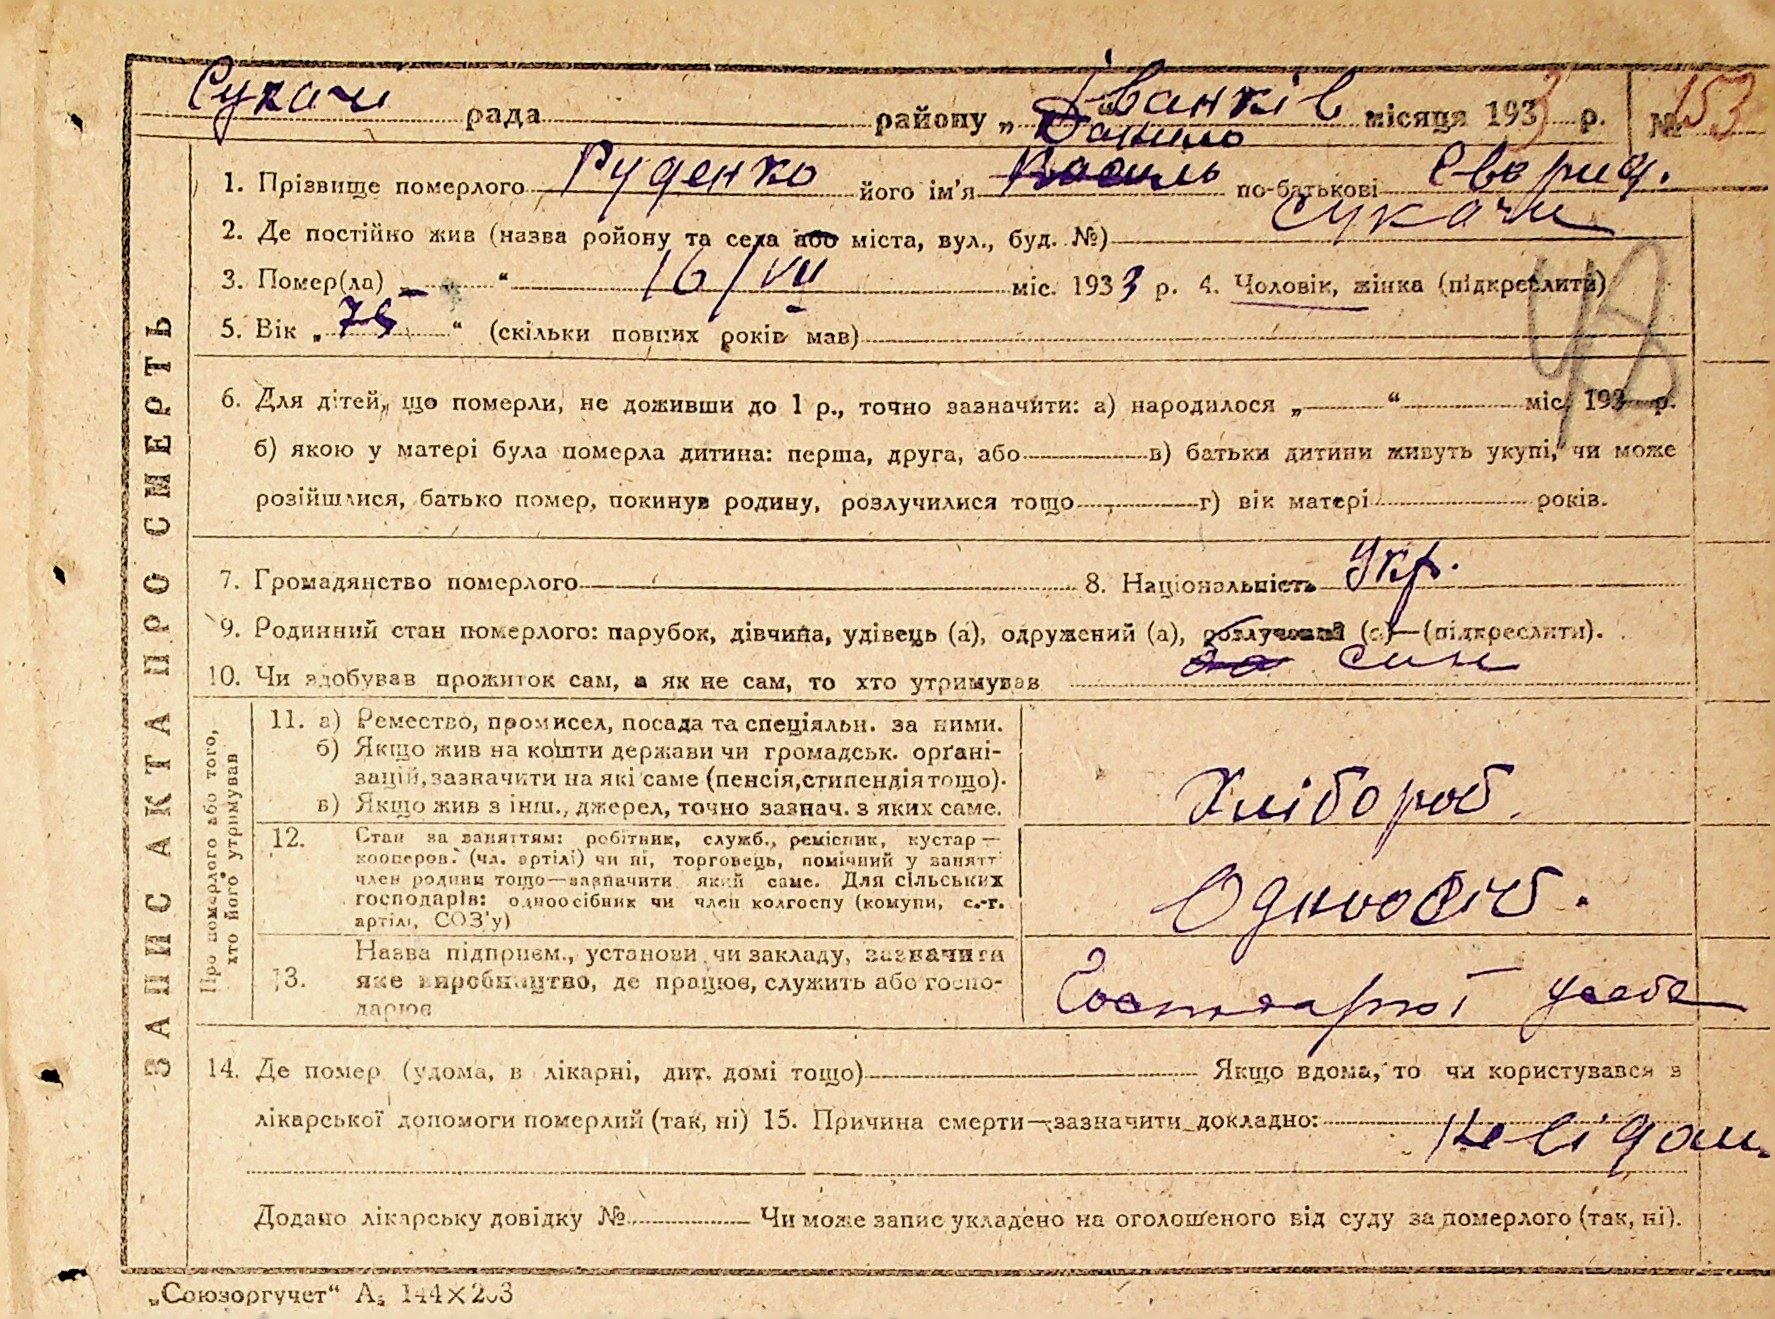 Сукачі рада району „ Іванків місяця 1933 р. № 153
Данило
1. Прізвище померлого Руденко його ім'я Василь по-батькові Сверид.
2. Де постійно жив (назва ройону та села або міста, вул., буд. №) Сукачи
3. Помер(ла) „ “ 16/VII міс. 1933 р. 4. Чоловік, жінка (підкреслити)
5. Вік „ 75 “ (скільки повних років мав)
6. Для дітей, що померли, не доживши до 1 р., точно зазначити: а) народилося „ “ міс. 193 р.
б) якою у матері була померла дитина: перша, друга, або в) батьки дитини живуть укупі, чи може
розійшлися, батько помер, покинув родину, розлучилися тощо г) вік матері років.
7. Громадянство померлого 8. Національність Укр.
9. Родинний стан померлого: парубок, дівчина, удівець (а), одружений (а), розлучений (а)—(підкреслити).
10. Чи здобував прожиток сам, а як не сам, то хто утримував син
11. а) Ремество, промисел, посада та спеціяльн. за ними.
б) Якщо жив на кошти держави чи громадськ. орґані-
зацій, зазначити на які саме (пенсія, стипендія тощо).
в) Якщо жив з інш., джерел, точно зазнач. з яких саме.
Хлібороб.
12. Стан за заняттям: робітник, служб., ремісник, кустар—
кооперов. (чл. артілі) чи ні, торговець, помічний у занятт
член родини тощо—зазначити який саме. Для сільських
господарів: одноосібник чи член колгоспу (комуни, с.-г.
артілі, СОЗ'у)
Одноосіб.
Назва підприєм., установи чи закладу, зазначити
13. яке виробництво, де працює, служить або госпо-
дарює
у себе
14. Де помер (удома, в лікарні, дит. домі тощо) Якщо вдома, то чи користувався з
лікарської допомоги померлий (так, ні) 15. Причина смерти—зазначити докладно: Не відом.
Додано лікарську довідку № Чи може запис укладено на оголошеного від суду за померлого (так, ні).
ЗАПИС АКТА ПРО СМЕРТЬ
Про померлого або того,
хто його утримував
„Союзоргучет“ А₅ 144×203